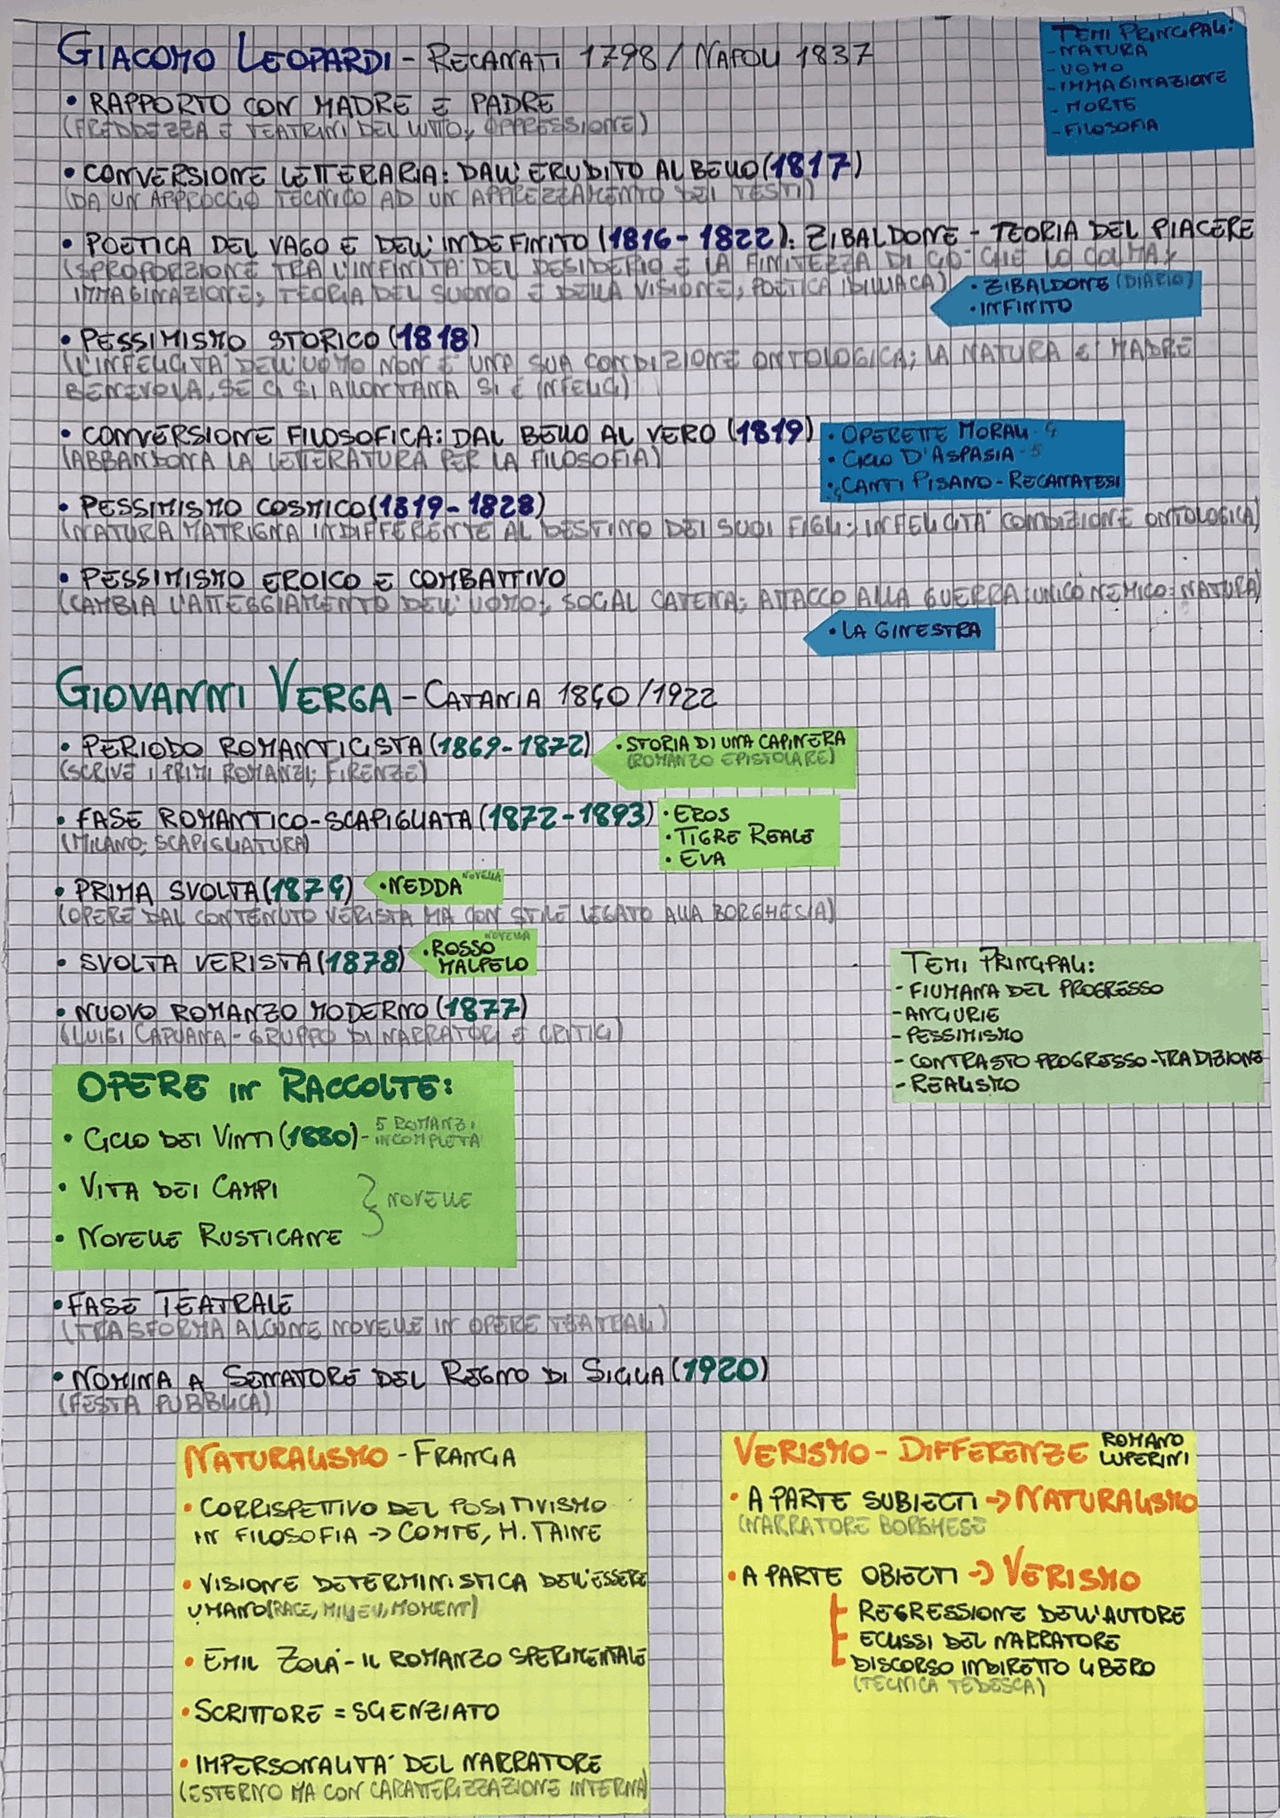 GIACOMO LEOPARDI - RECANATI 1798 / NAPOLI 1837
TEMI PRINCIPALI:
- NATURA
- UOMO
- IMMAGINAZIONE
- MORTE
- FILOSOFIA
• RAPPORTO CON MADRE E PADRE
(FREDDEZZA E TEATRINI DEL LUTTO, OPPRESSIONE)
• CONVERSIONE LETTERARIA: DALL'ERUDITO AL BELLO (1817)
(DA UN APPROCCIO TECNICO AD UN APPREZZAMENTO DEI TESTI)
• POETICA DEL VAGO E DELL'INDEFINITO (1816-1822): ZIBALDONE - TEORIA DEL PIACERE
(SPROPORZIONE TRA L'INFINITA' DEL DESIDERIO E LA FINITEZZA DI CIO' CHE LO COLMA;
IMMAGINAZIONE; TEORIA DEL SUONO E DELLA VISIONE; POETICA IDILLIACA)
• ZIBALDONE (DIARIO)
• INFINITO
• PESSIMISMO STORICO (1818)
(L'INFELICITA' DELL'UOMO NON E' UNA SUA CONDIZIONE ONTOLOGICA; LA NATURA E' MADRE
BENEVOLA, SE CI SI ALLONTANA SI E' INFELICI)
• CONVERSIONE FILOSOFICA: DAL BELLO AL VERO (1819)
(ABBANDONA LA LETTERATURA PER LA FILOSOFIA)
• OPERETTE MORALI - 4
• CICLO D'ASPASIA - 5
• CANTI PISANO-RECANATESI
• PESSIMISMO COSMICO (1819-1828)
(NATURA MATRIGNA INDIFFERENTE AL DESTINO DEI SUOI FIGLI; INFELICITA' CONDIZIONE ONTOLOGICA)
• PESSIMISMO EROICO E COMBATTIVO
(CAMBIA L'ATTEGGIAMENTO DELL'UOMO; SOCIAL CATENA; ATTACCO ALLA GUERRA: UNICO NEMICO: NATURA)
• LA GINESTRA
GIOVANNI VERGA - CATANIA 1840/1922
• PERIODO ROMANTICISTA (1869-1872)
(SCRIVE I PRIMI ROMANZI; FIRENZE)
• STORIA DI UNA CAPINERA
(ROMANZO EPISTOLARE)
• FASE ROMANTICO-SCAPIGLIATA (1872-1893)
(MILANO; SCAPIGLIATURA)
• EROS
• TIGRE REALE
• EVA
• PRIMA SVOLTA (1874)
• NEDDA NOVELLA
(OPERE DAL CONTENUTO VERISTA MA CON STILE LEGATO ALLA BORGHESIA)
• SVOLTA VERISTA (1878)
• ROSSO NOVELLA
MALPELO
• NUOVO ROMANZO MODERNO (1877)
(LUIGI CAPUANA - GRUPPO DI NARRATORI E CRITICI)
TEMI PRINCIPALI:
- FIUMANA DEL PROGRESSO
- ANGURIE
- PESSIMISMO
- CONTRASTO PROGRESSO-TRADIZIONE
- REALISMO
OPERE IN RACCOLTE:
• CICLO DEI VINTI (1880) - 5 ROMANZI
INCOMPLETA
• VITA DEI CAMPI
• NOVELLE RUSTICANE
} NOVELLE
• FASE TEATRALE
(TRASFORMA ALCUNE NOVELLE IN OPERE TEATRALI)
• NOMINA A SENATORE DEL REGNO DI SICILIA (1920)
(FESTA PUBBLICA)
NATURALISMO - FRANCIA
• CORRISPETTIVO DEL POSITIVISMO
IN FILOSOFIA → COMTE, H. TAINE
• VISIONE DETERMINISTICA DELL'ESSERE
UMANO (RACE, MILIEU, MOMENT)
• EMIL ZOLA' - IL ROMANZO SPERIMENTALE
• SCRITTORE = SCIENZIATO
• IMPERSONALITA' DEL NARRATORE
(ESTERNO MA CON CARATTERIZZAZIONE INTERNA)
VERISMO - DIFFERENZE ROMANO
LUPERINI
• A PARTE SUBIECTI → NATURALISMO
(NARRATORE BORGHESE
• A PARTE OBIECTI → VERISMO
REGRESSIONE DELL'AUTORE
ECLISSI DEL NARRATORE
DISCORSO INDIRETTO LIBERO
(TECNICA TEDESCA)